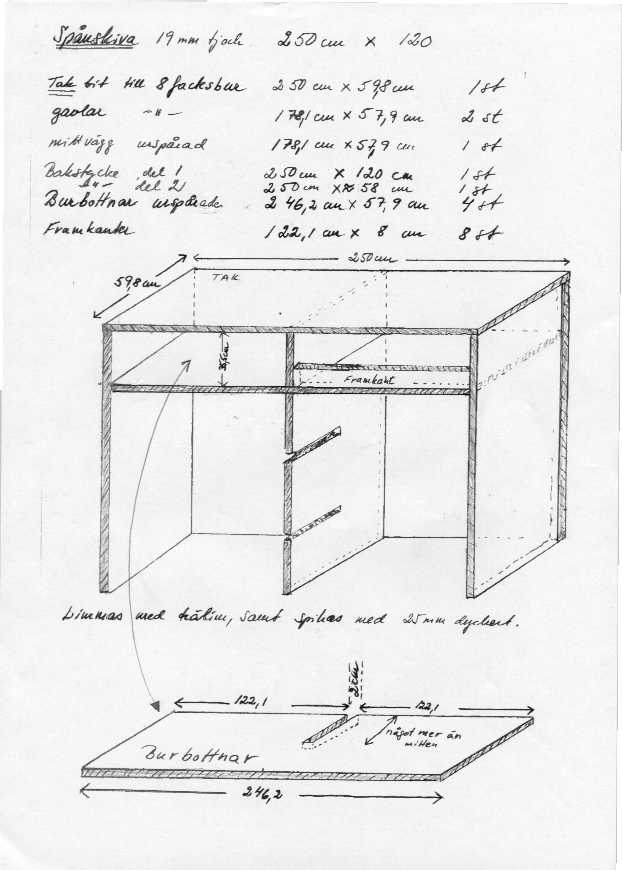 Spånskiva 19 mm tjock 250 cm × 120
Tak bit till 8 facksbur 250 cm × 59,8 cm 1 st
gavlar -"- 178,1 cm × 57,9 cm 2 st
mittvägg urspårad 178,1 cm × 57,9 cm 1 st
Bakstycke del 1 250 cm × 120 cm 1 st
-"- del 2 250 cm × 58 cm 1 st
Burbottnar urspårade 246,2 cm × 57,9 cm 4 st
Framkanter 122,1 cm × 8 cm 8 st
250 cm
59,8 cm
TAK
Framkant
Limmas med trälim, samt spikas med 25 mm dyckert.
122,1
122,1
något mer än
mitten
Burbottnar
246,2